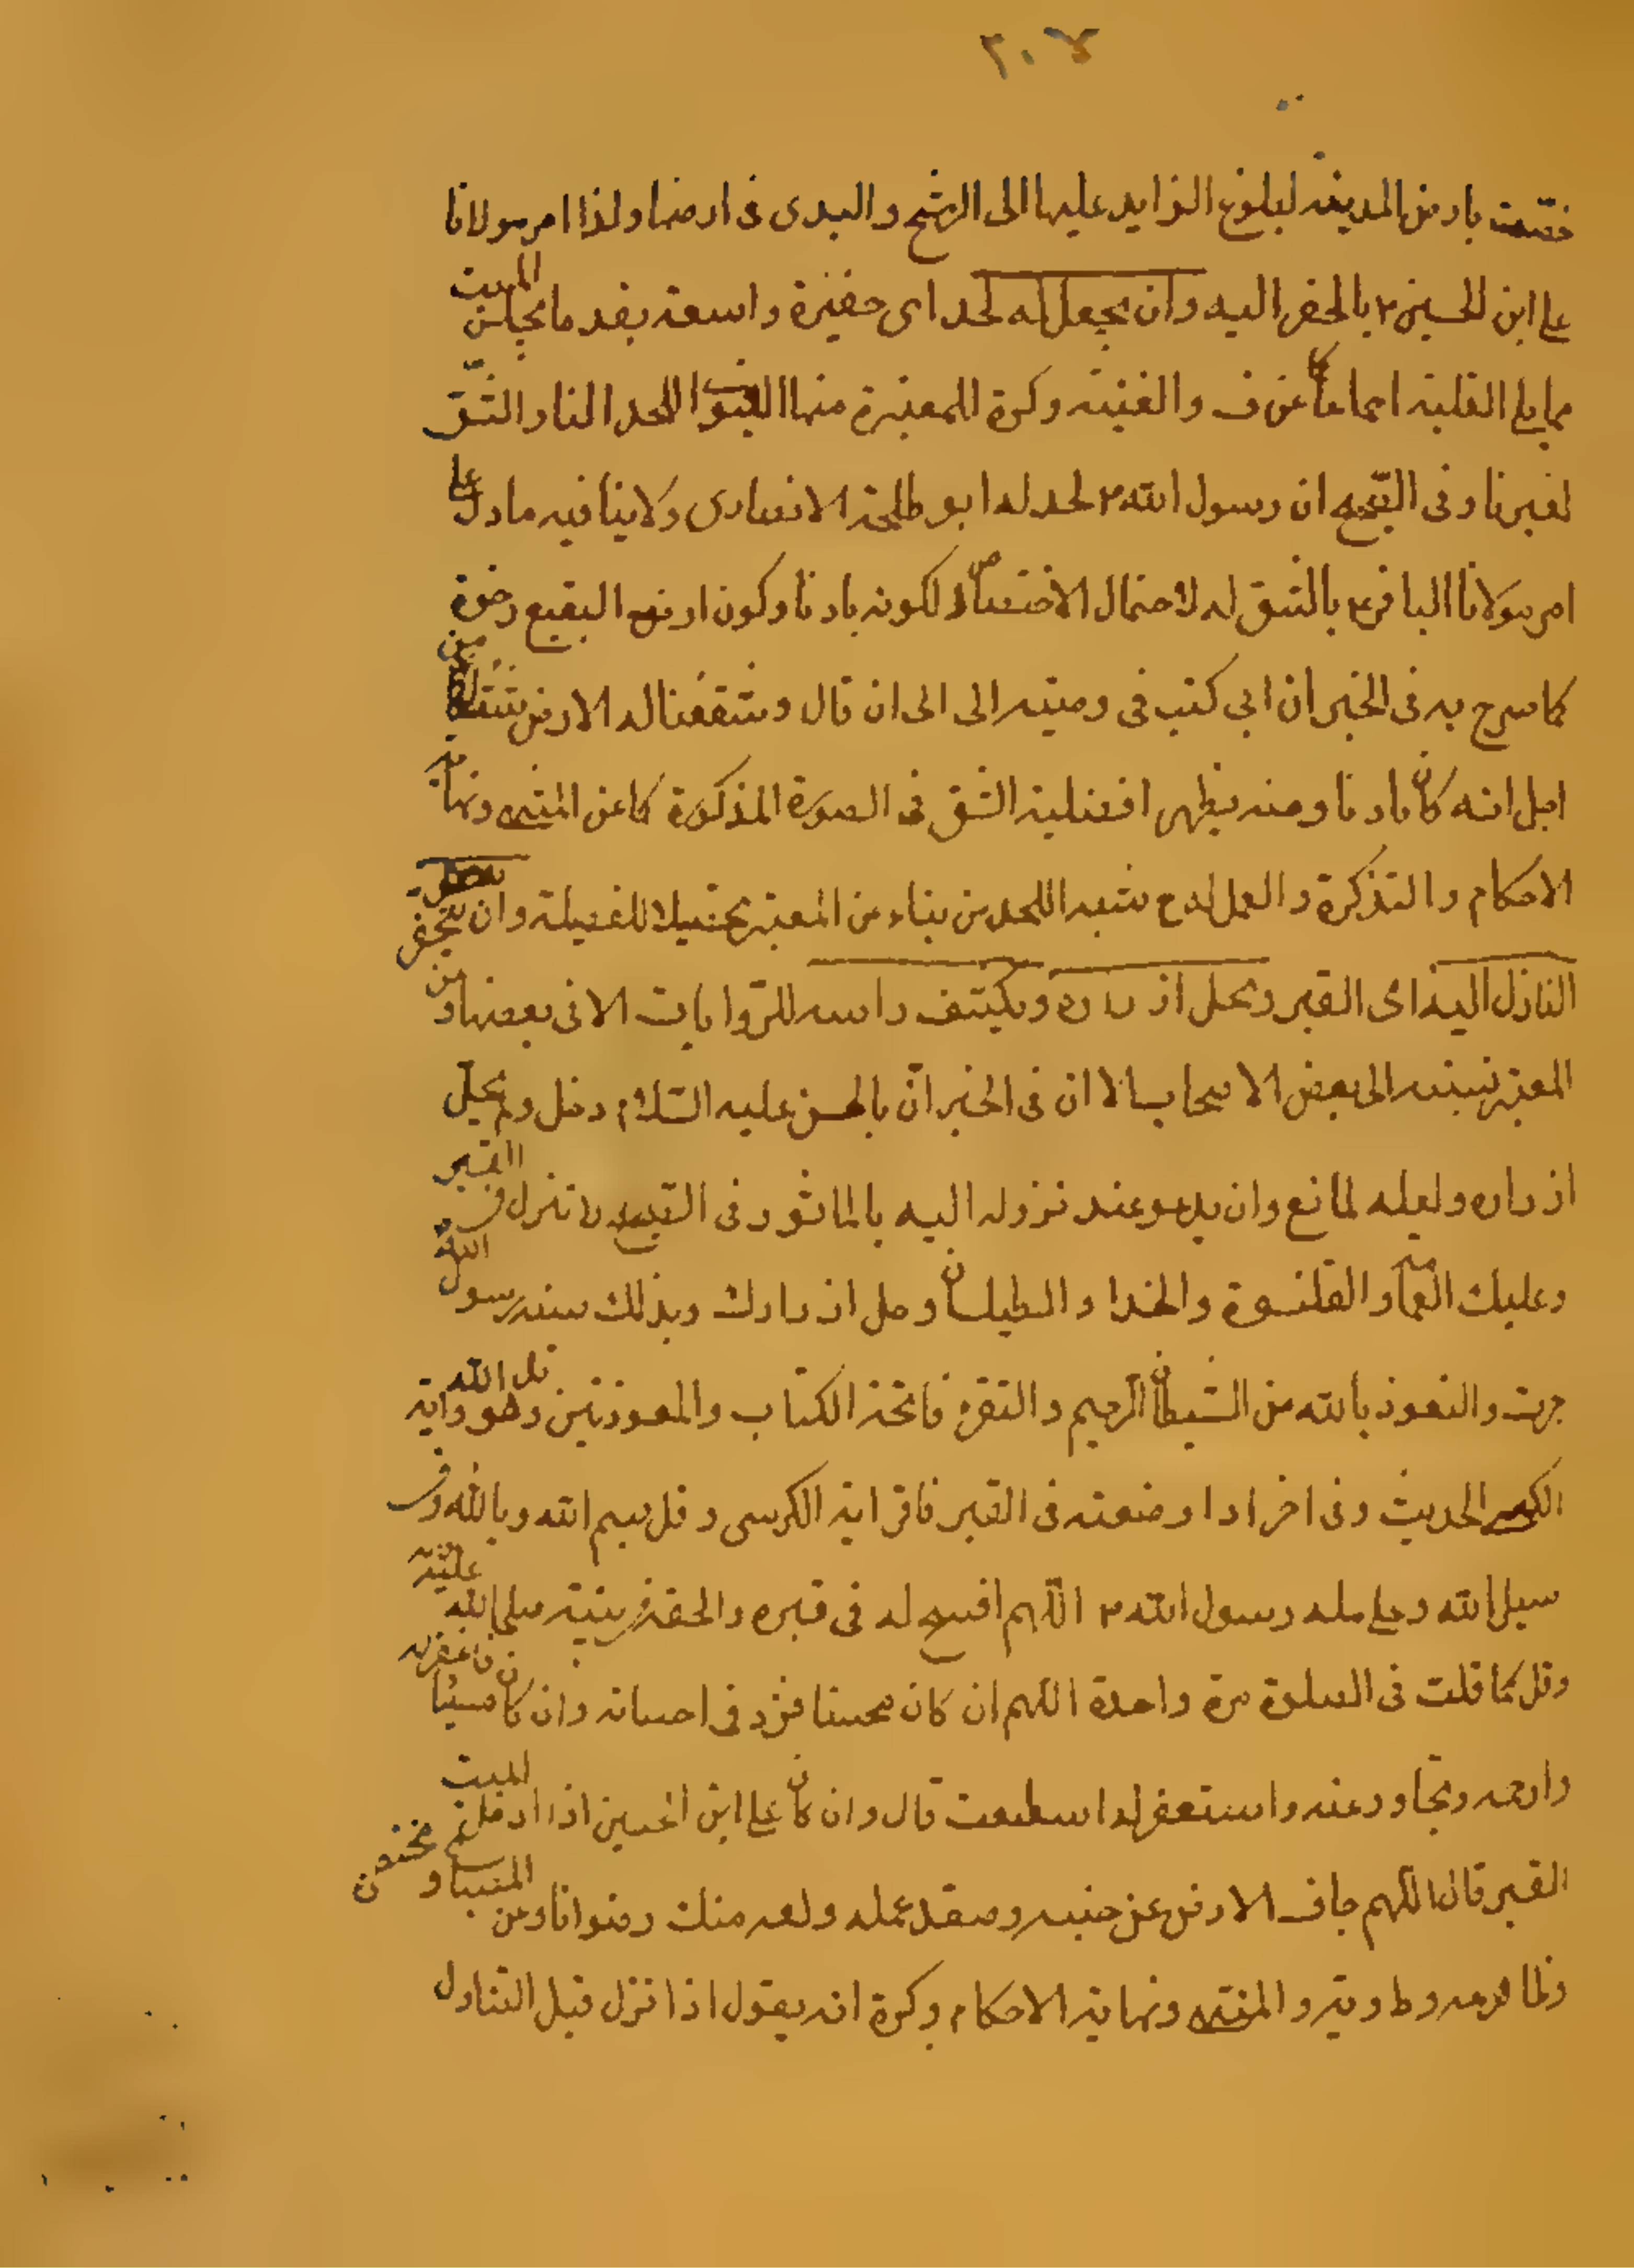 ٢٠٧
خصّت بارض المدينة لبلوغ الزايد عليها الى الرشح والبدى فى ارضها ولذا امر مولانا
على ابن الحسين ٢ بالحفر اليه وان يجعل له لحد اى حفيرة واسعة بقدر ما يجلس الميت
مما يلى القبلة اجماعا كما عن ف والغنية وكرة للمعتبرة منها اللحد لنا والشق
لغيرنا وفى الصحيح ان رسول الله ٢ لحد له ابو طلحة الانصارى ولا ينافيه ما دل على
امر مولانا الباقر ٢ بالشق له لاحتمال الاختصاص لكونه بادنا وكون ارض البقيع رخوة
كما صرح به فى الخبر ان ابى كتب فى وصيته الى الى ان قال وشققنا له الارض شقا من
اجل انه كان بادنا ومنه يظهر افضلية الشق فى الصورة المذكورة كما عن المنتهى ونهاية
الاحكام والتذكرة والعمل له ح شبه اللحد من بناء عن المعتبر تحصيلا للفضيلة وان يتحفى
النازل اليه اى القبر ويحل ازراره ويكشف راسه للروايات الا فى بعضها وعن
المعتبر نسبته الى بعض الاصحاب الا ان فى الخبر انّ بالحسن عليه السّلام دخل ولم يحلّ
ازراره ولعله لمانع وان يدعو عند نزوله اليه بالماثور وفى الصحيح لا تنزل فى القبر
وعليك العمامة والقلنسوة والحذا والطيلسان وحل ازرارك وبذلك سنة رسول الله
جرت والتعوذ بالله من الشيطان الرجيم والتقرء فاتحة الكتاب والمعوذتين وقل هو الله واية
الكرسى الحديث وفى اخر اذا وضعته فى القبر فاقرا اية الكرسى وقل بسم الله وبالله وفى
سبيل الله وعلى ملة رسول الله ٢ اللّهم افسح له فى قبره والحقه بنبيه صلى الله عليه
وقل كما قلت فى الصلوة مرة واحدة اللهم ان كان محسنا فزد فى احسانه وان كان مسيئا فاغفر له
وارحمه وتجاوز عنه واستغفر له ما استطعت قال وان كان على ابن الحسين اذا ادخل الميت
القبر قال اللّهم جاف الارض عن جنبيه وصعّد عمله ولقه منك رضوانا وعن
وظاهره وط وية والمنتهى ونهاية الاحكام وكرة انه يقول اذا نزل قبل التناول